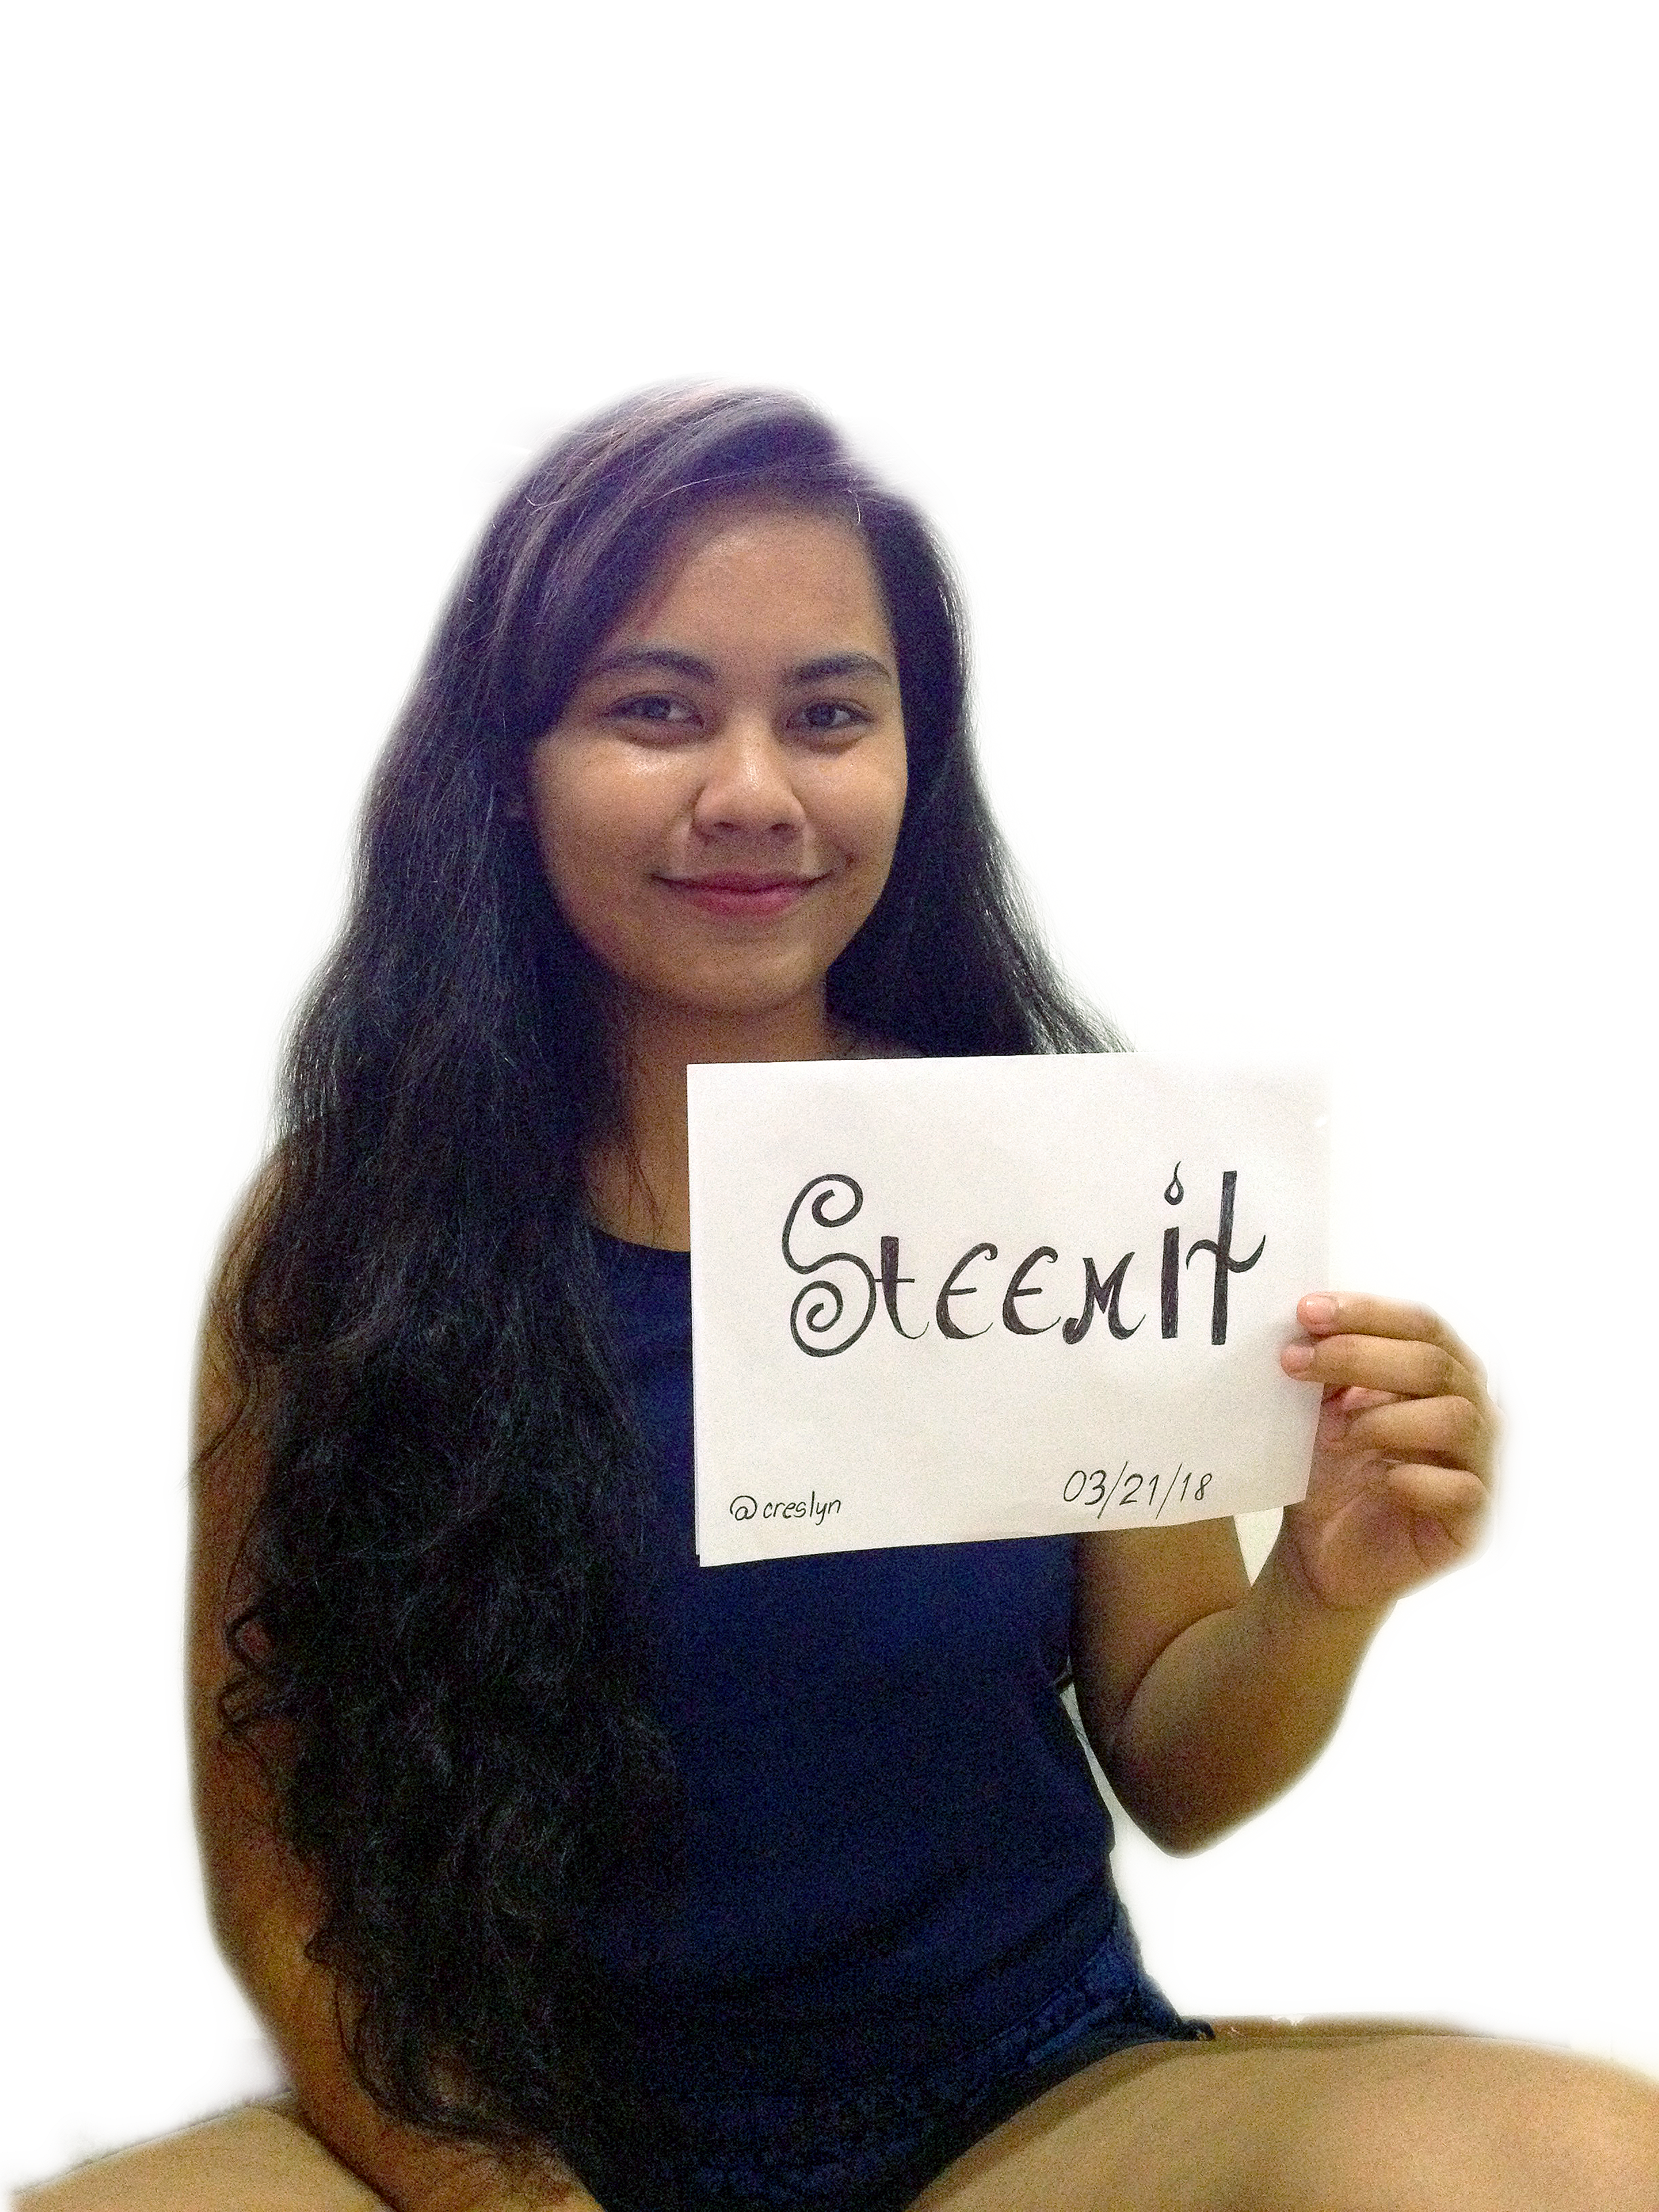 SteemiT
@creslyn
03/21/18